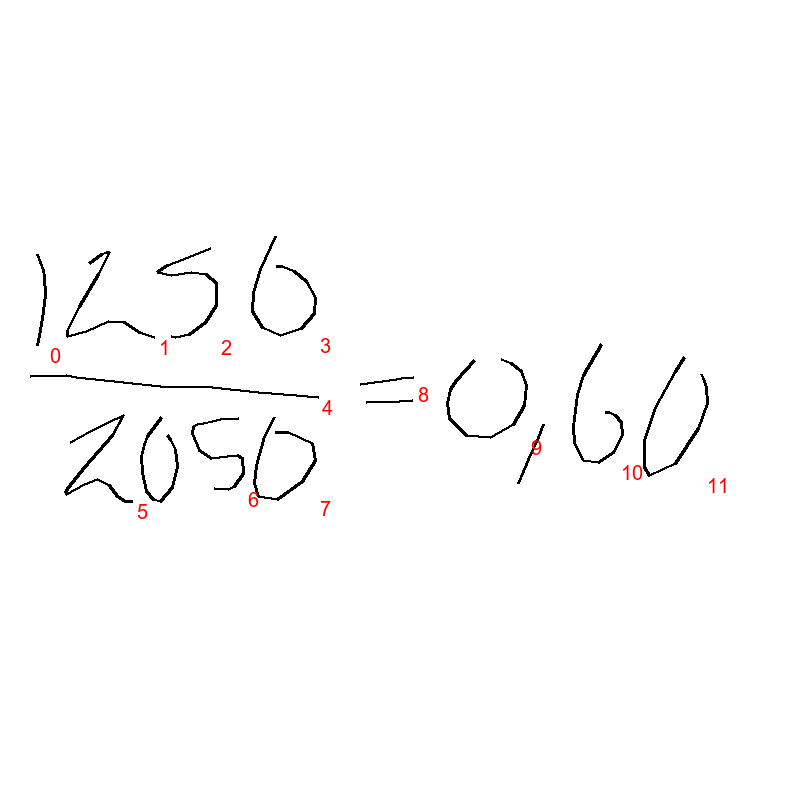 1256
2056
= 0,60
0 1 2 3 4 5 6 7 8 9 10 11